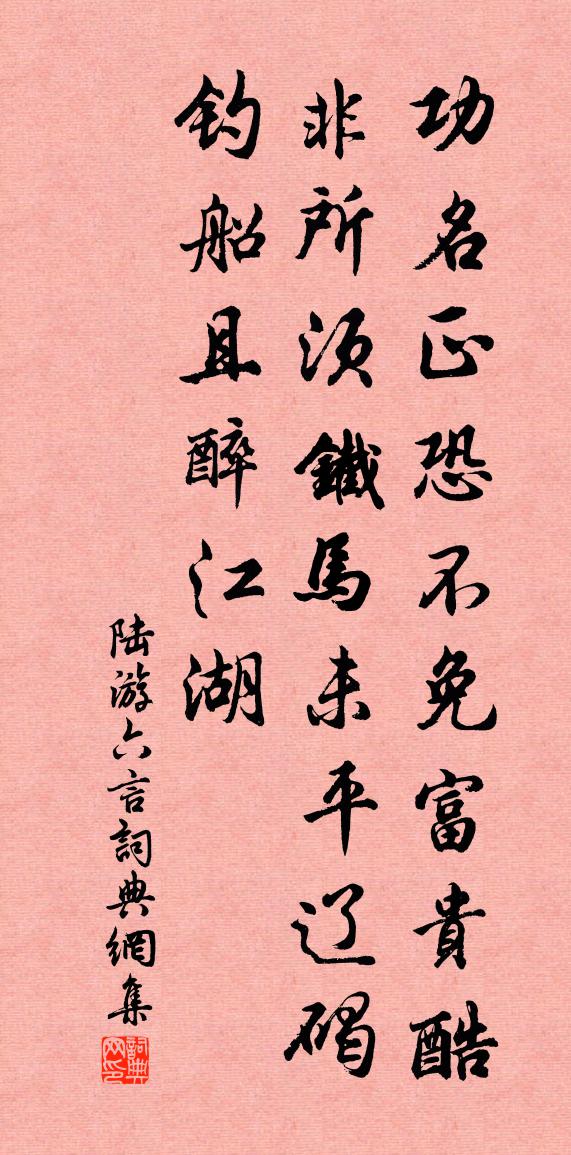 功名正恐不免富貴酷
非所須鐵馬未平辽碣
钓船且醉江湖
陆游六言詞典網集
詞典网印